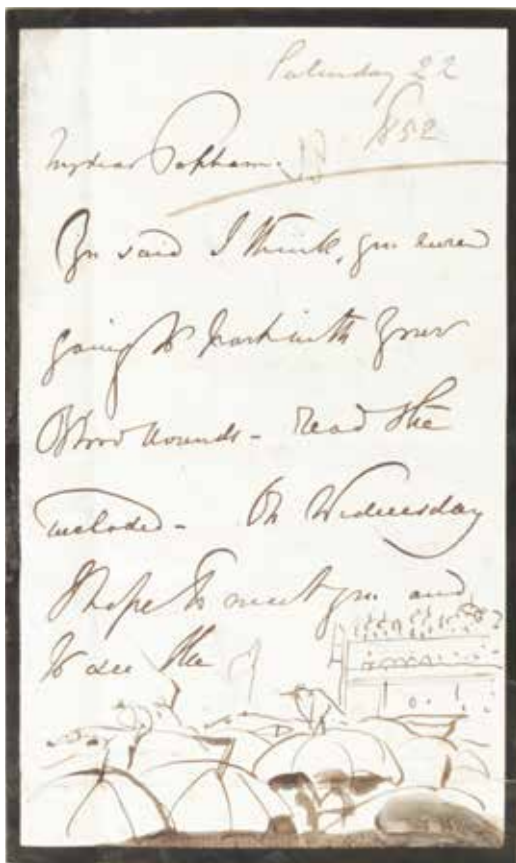 Saturday 22
1852
My dear Popham.
You said I think, you were
going to part with your
Blood hounds - read the
inclosed - On Wednesday
I hope to meet you and
to see the